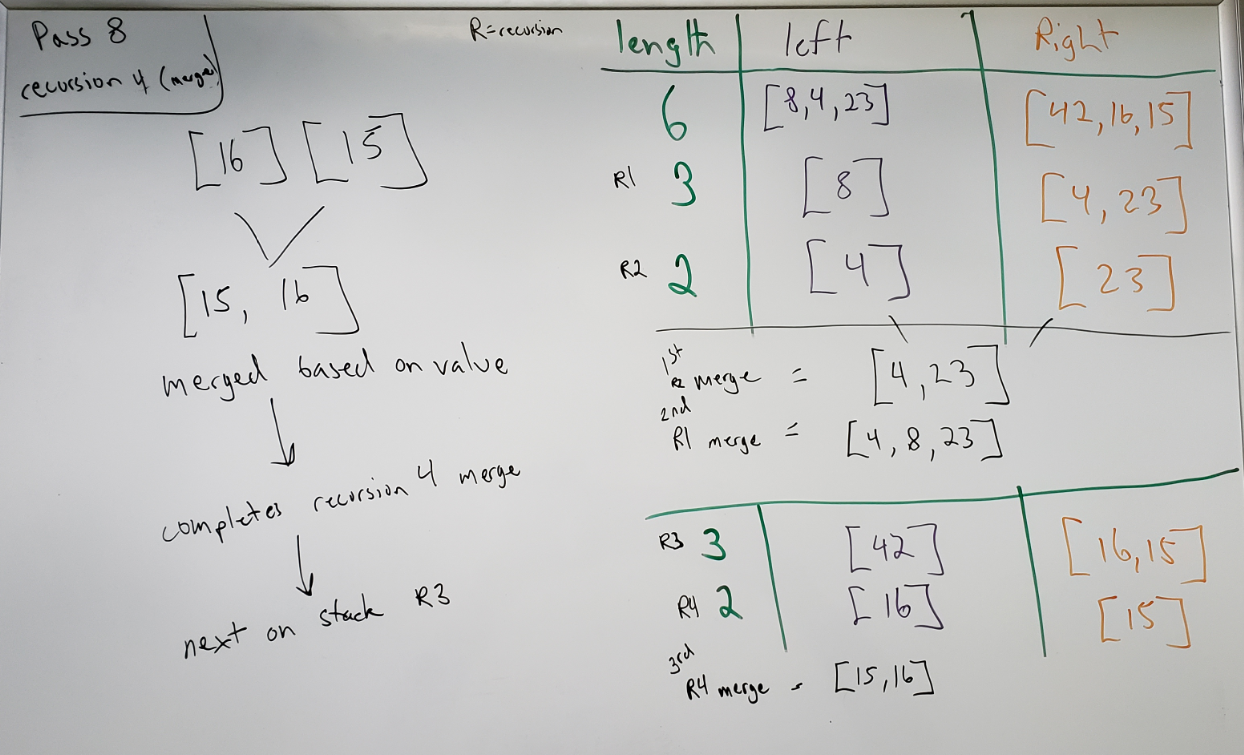 Pass 8
recursion 4 (merge)
[16] [15]
[15, 16]
merged based on value
completes recursion 4 merge
next on stack R3
R=recursion
length left Right
6 [8,4,23] [42,16,15]
R1 3 [8] [4,23]
R2 2 [4] [23]
1st
R2 merge = [4,23]
2nd
R1 merge = [4,8,23]
R3 3 [42] [16,15]
R4 2 [16] [15]
3rd
R4 merge = [15,16]